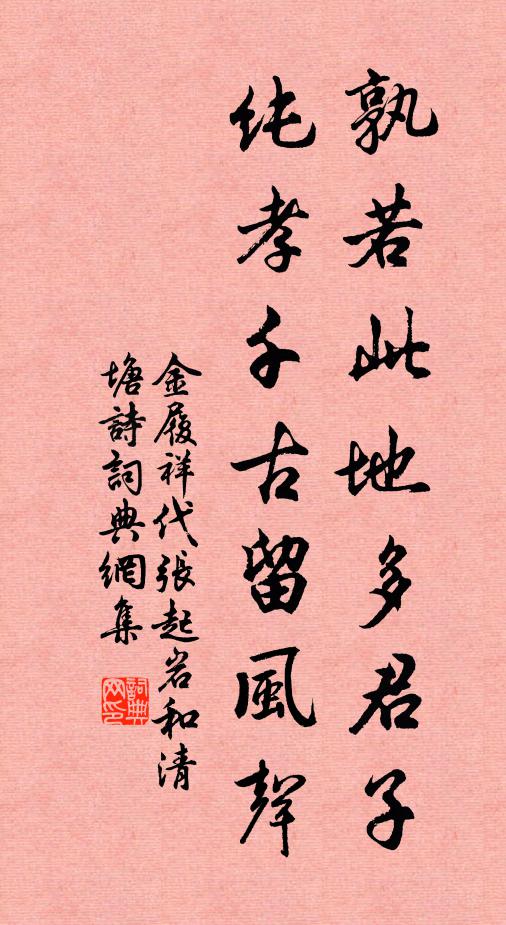 孰若此地多君子
纯孝千古留風聲
金履祥代張起岩和清
塘詩詞典網集
詞典
网印